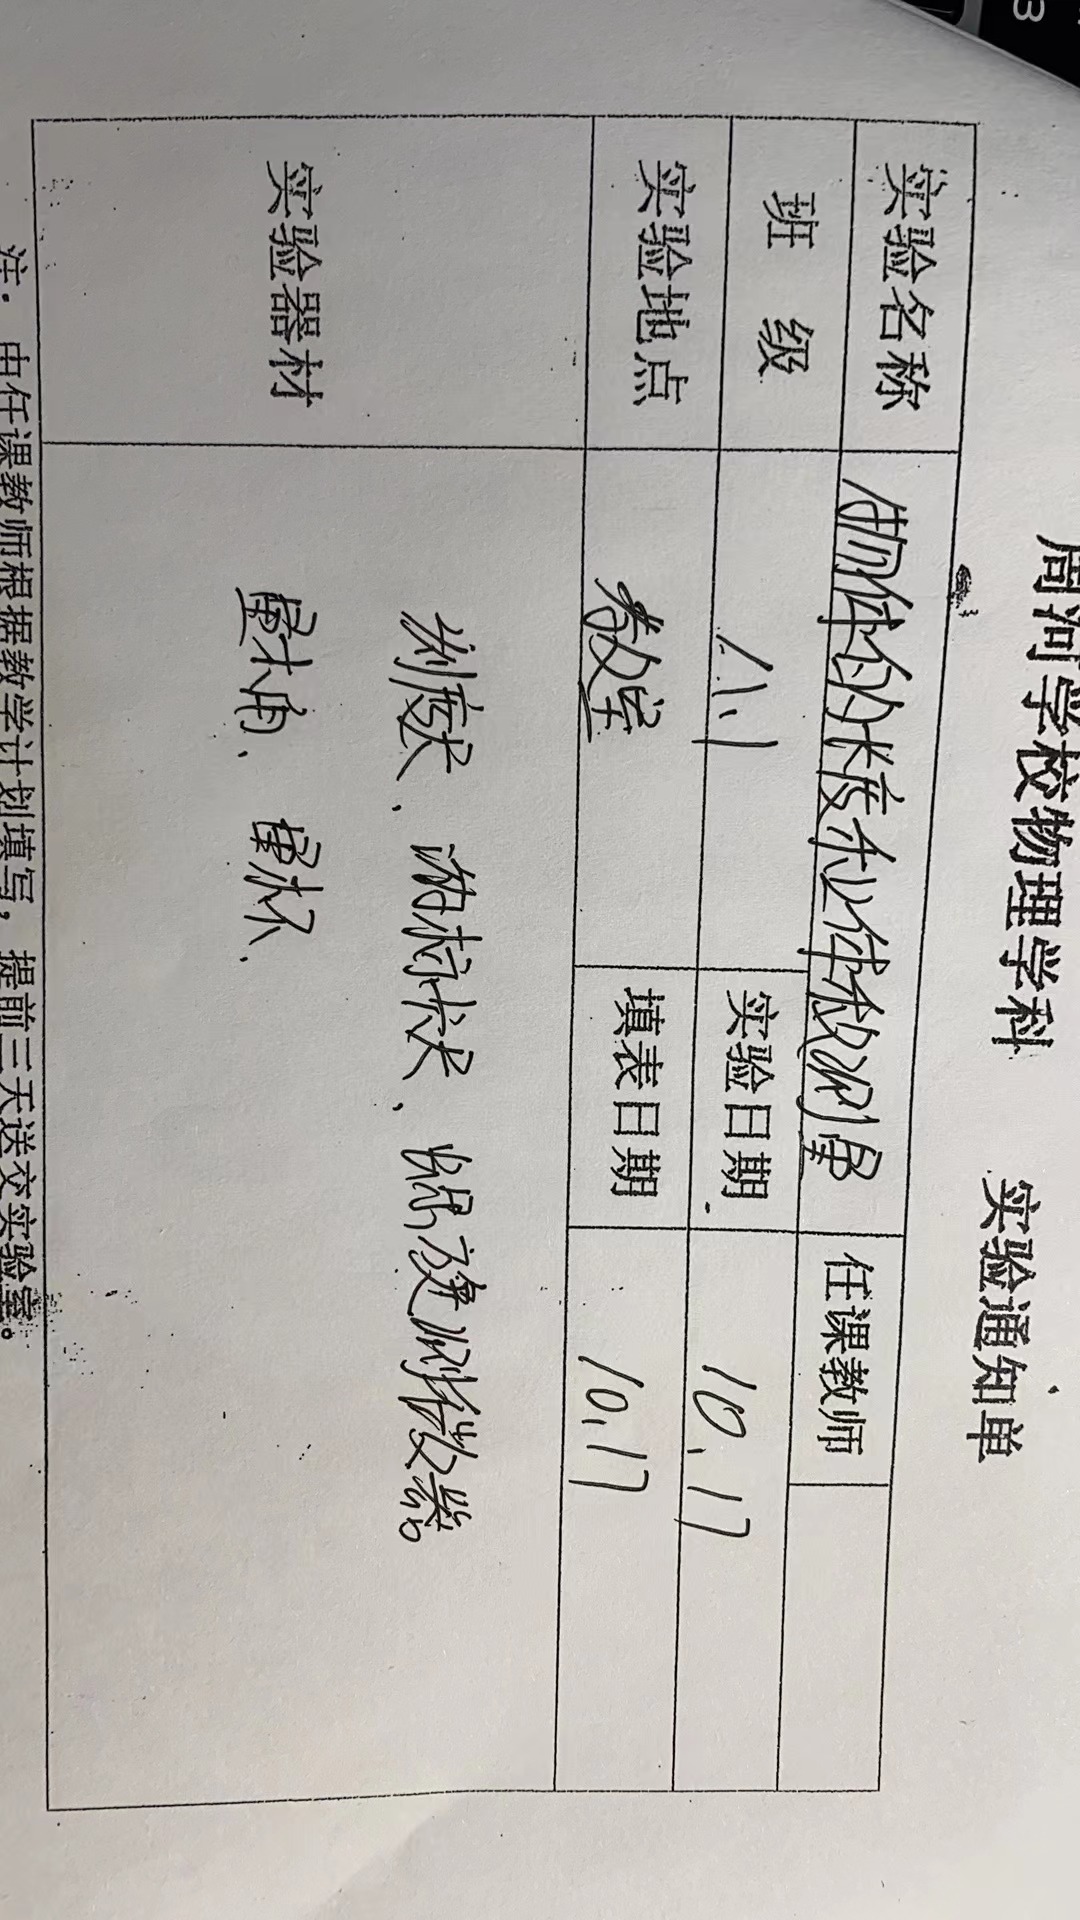 周河学校物理学科 实验通知单
实验名称 物体的长度和体积测量 任课教师
班 级 八.1 实验日期 10.17
实验地点 教室 填表日期 10.17
实验器材 刻度尺、
量杯、
注：由任课教师根据教学计划填写，提前三天送交实验室。
3